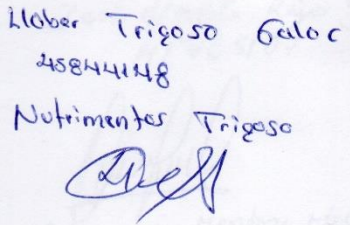 Llober Trigoso Galoc
45844148
Nutrimentos Trigoso